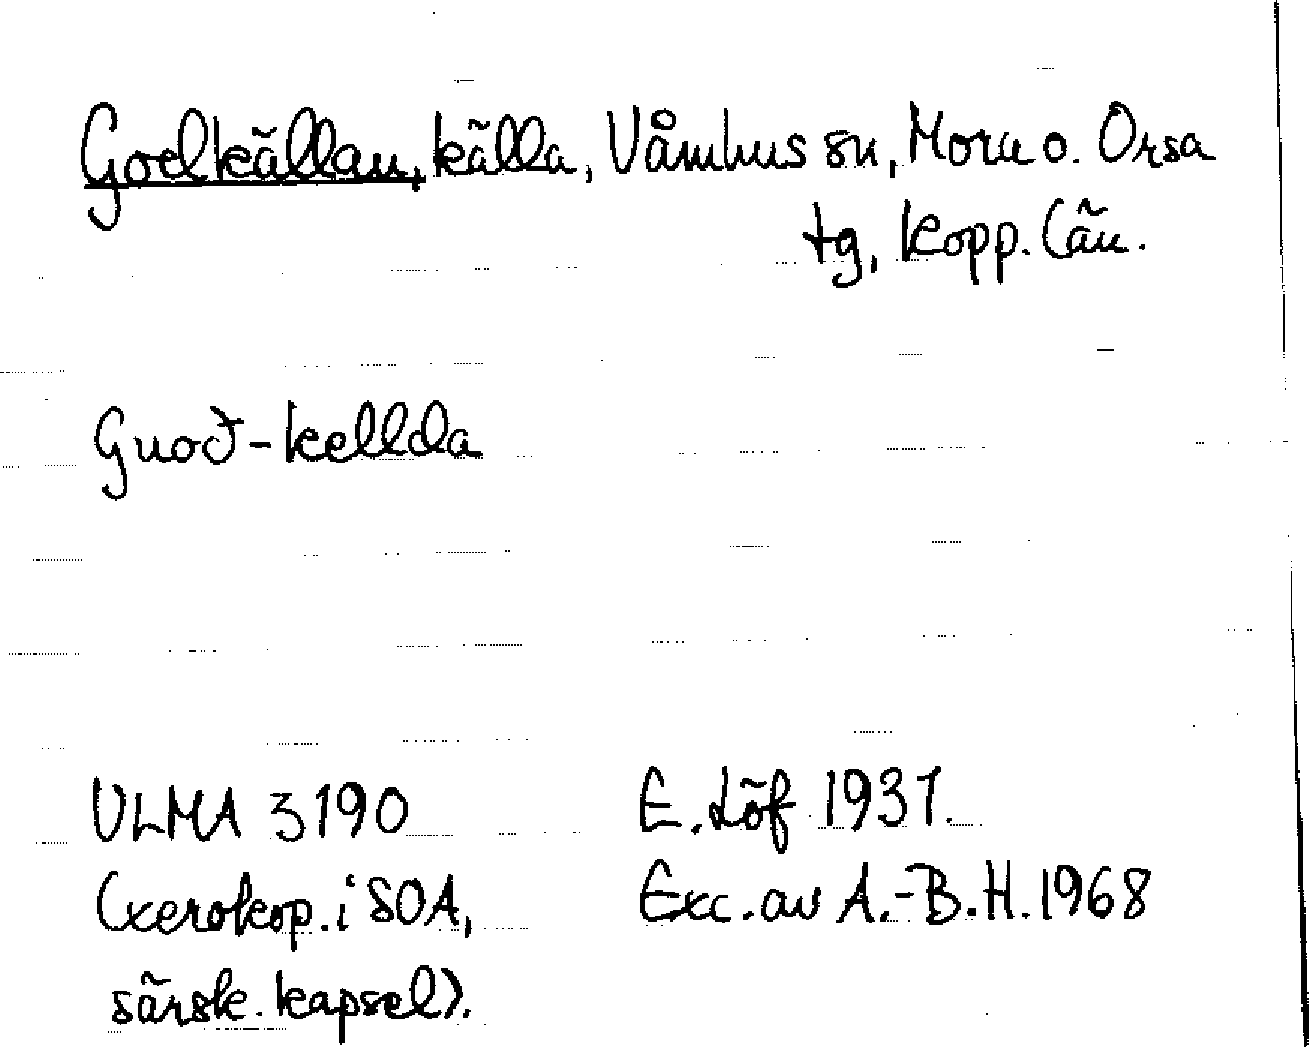 Godkällan, källa, Våmhus sn, Mora o. Orsa
tg, Kopp. län.
Guoð-kellda
ULMA 3190
E. Löf 1931.
(xerokop. i SOA,
Exc. av A.-B.H. 1968
särsk. kapsel).